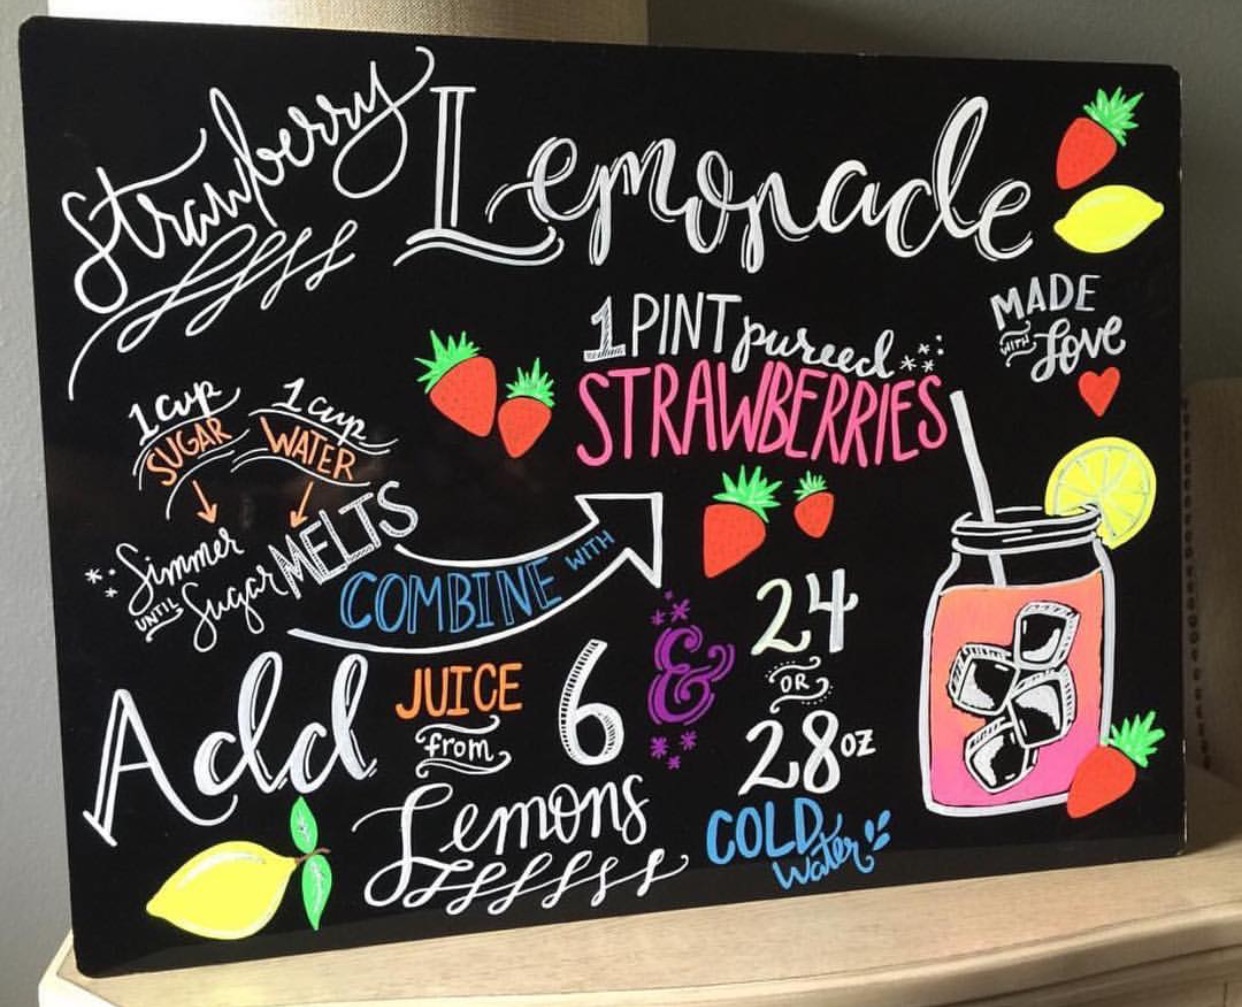 Strawberry Lemonade
MADE
WITH Love
1 PINT pureed
STRAWBERRIES
1 cup 1 cup
SUGAR WATER
Simmer
UNTIL Sugar MELTS
COMBINE WITH
Add JUICE
from
6
Lemons
&
24
OR
28 oz
COLD
Water